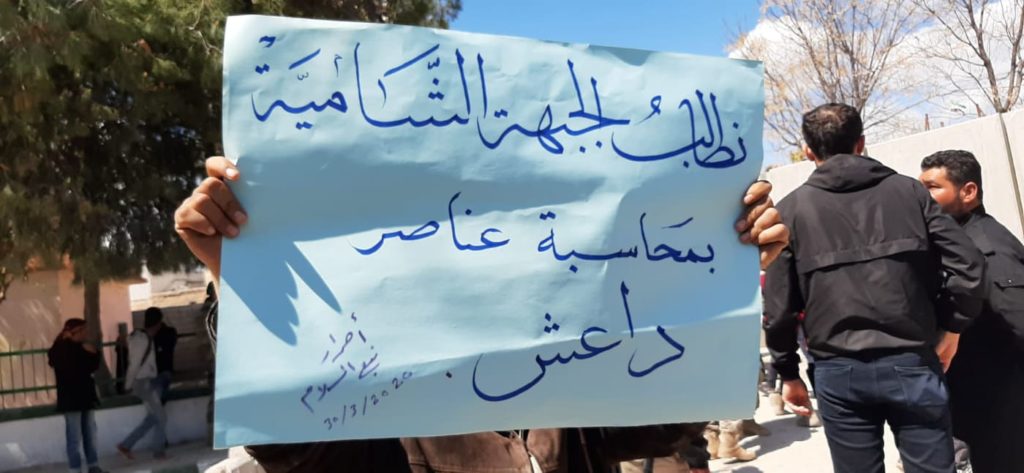 نطالبُ الجبهة الشَّاميَّة
بمَحاسبة عناصر
داعش.
أحرار
نبع السلام
30/3/2020